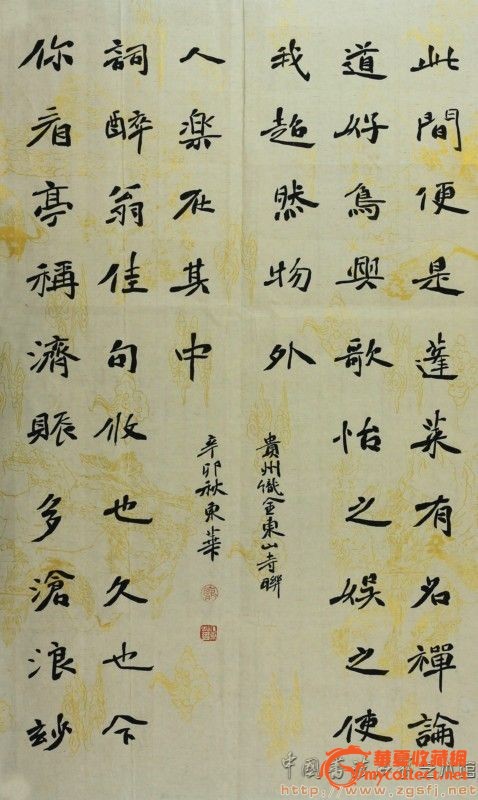 此間便是蓬萊有名禪論
道好鳥興歌怡之娛之使
我超然物外
貴州織金東山寺聯
你看亭稱濟賑多滄浪玅
詞醉翁佳句攸也久也令
人樂在其中
辛卯秋東華
華夏收藏網
mycollect.net
http://www.zgsfj.net